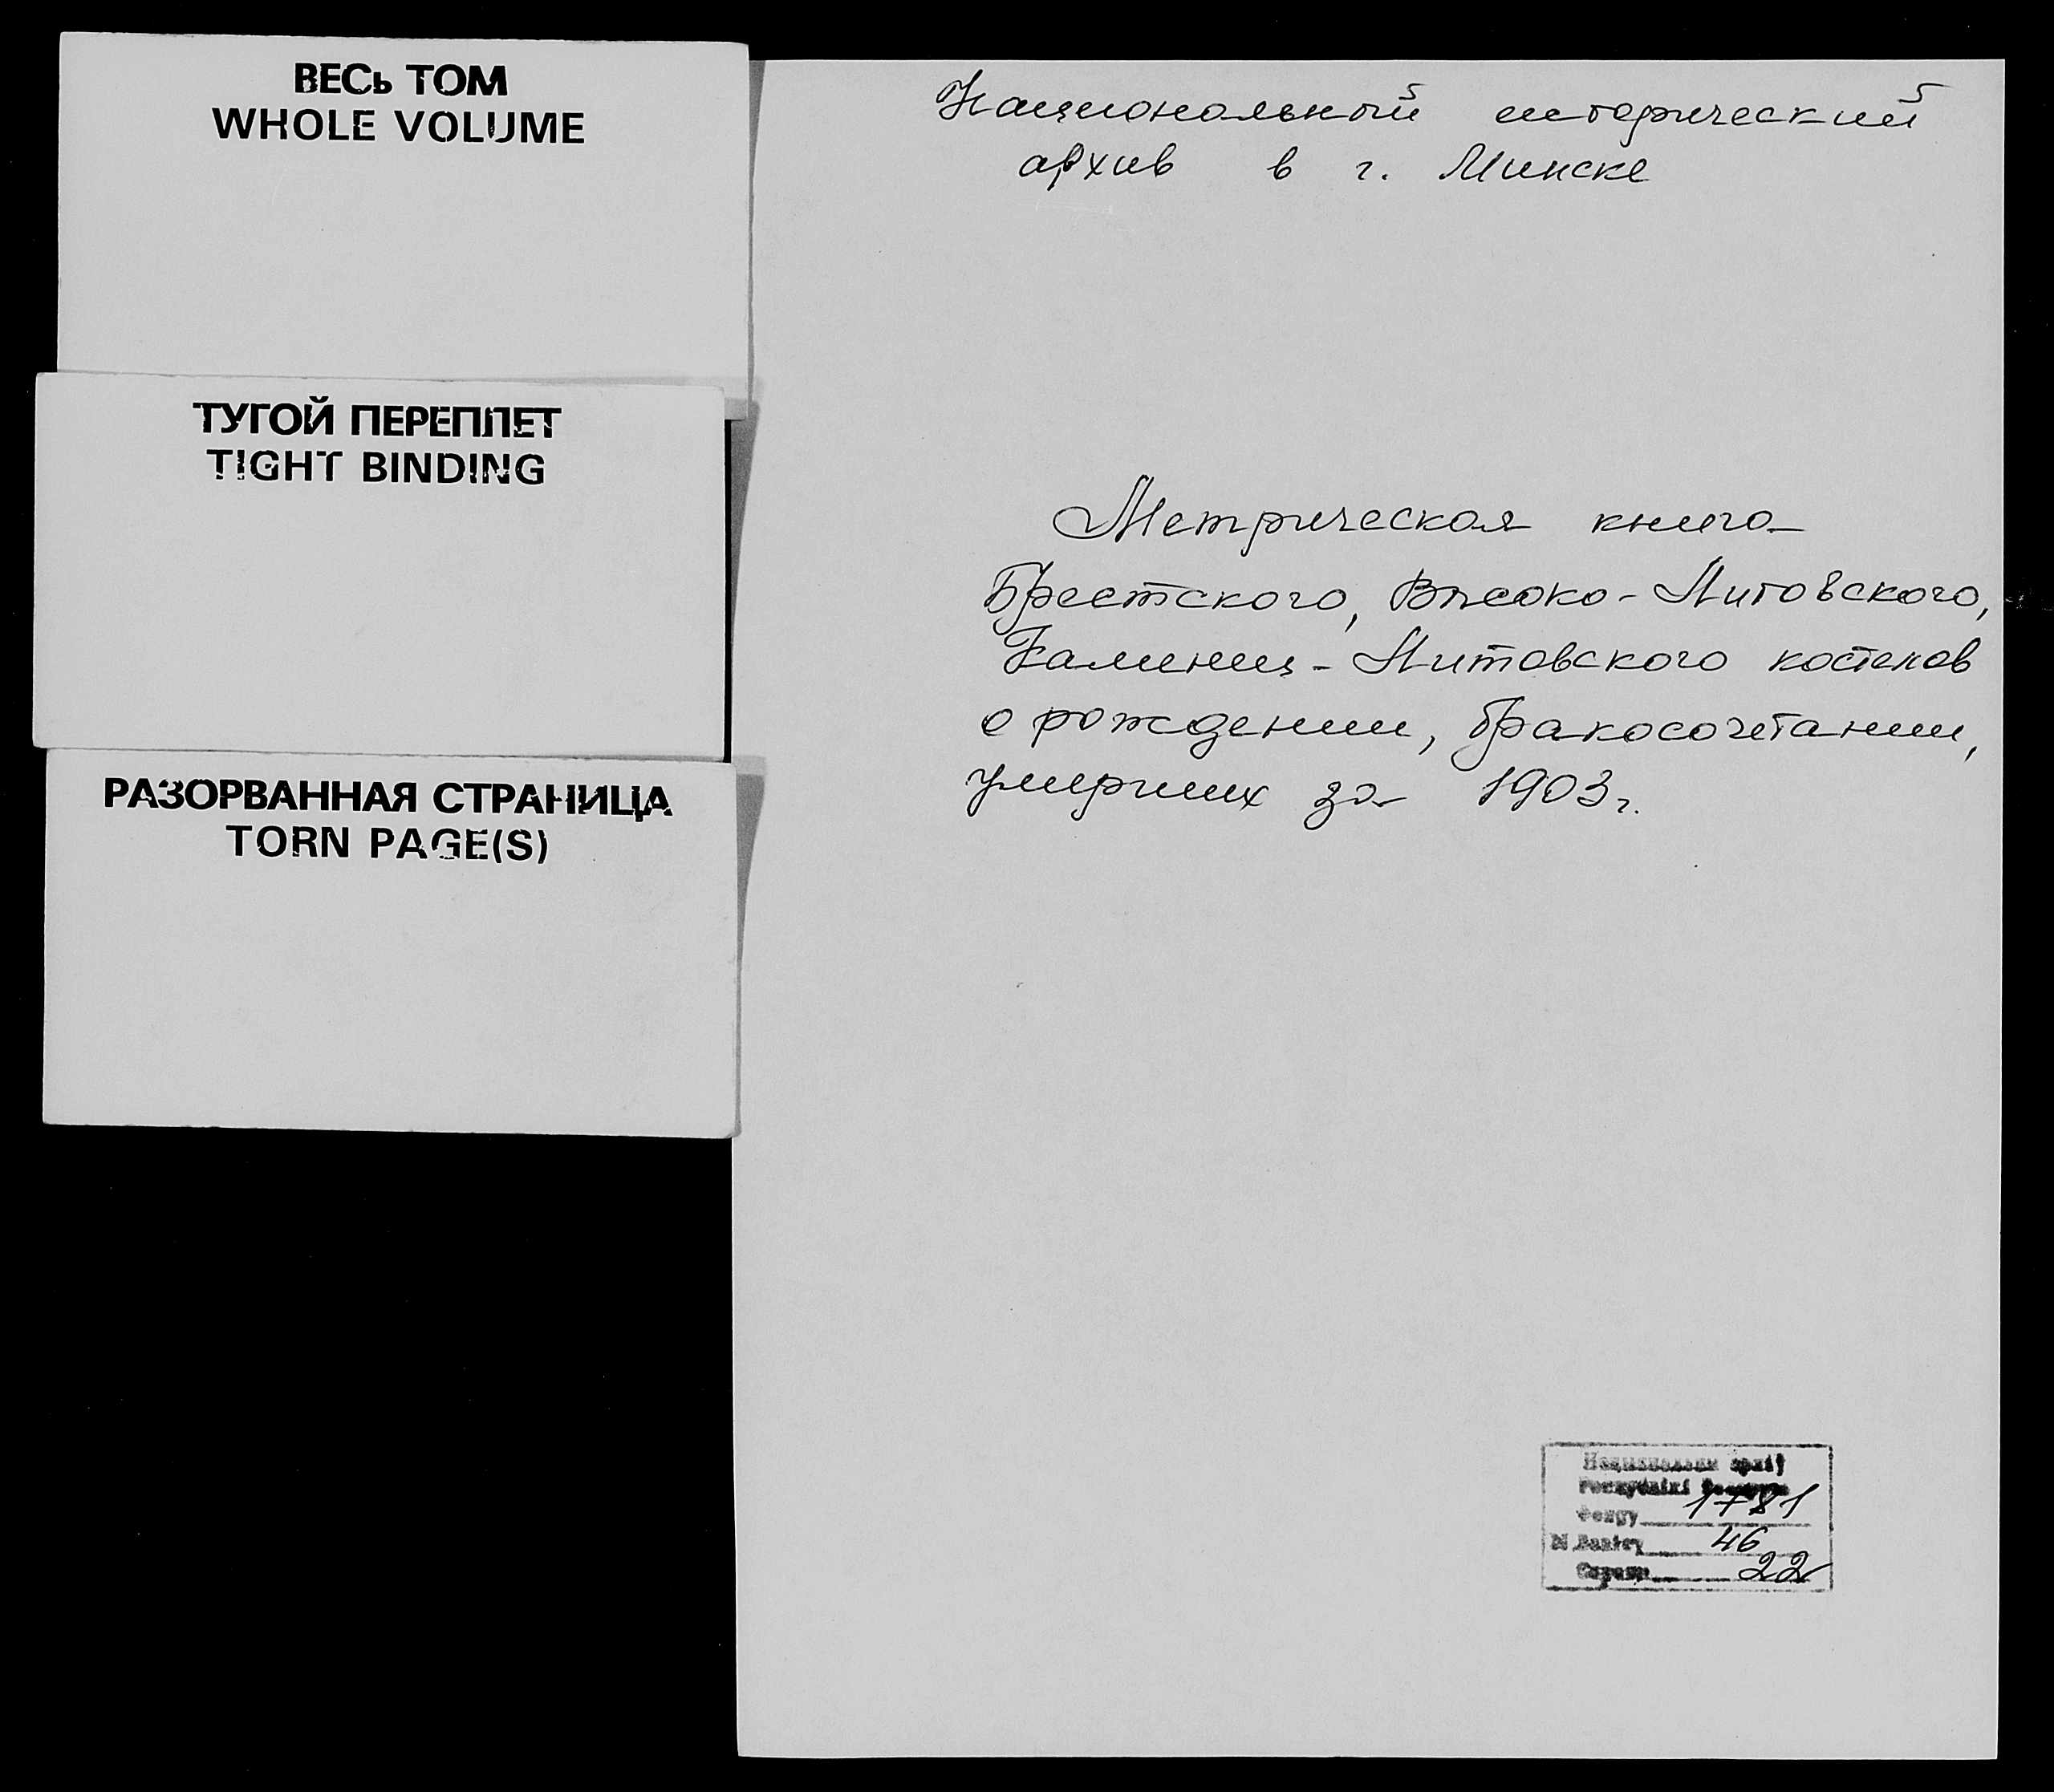 ВЕСЬ ТОМ
WHOLE VOLUME
ТУГОЙ ПЕРЕПЛЕТ
TIGHT BINDING
РАЗОРВАННАЯ СТРАНИЦА
TORN PAGE(S)
Национальный исторический
архив в г. Минске
Метрическая книга
Брестского, Высоко-Литовского,
Каменец-Литовского костелов
о рождении, бракосочетании,
умерших за 1903 г.
Нацыянальны архіў
Рэспублікі Беларусь
Фонду 1781
№ 46
Справа 22